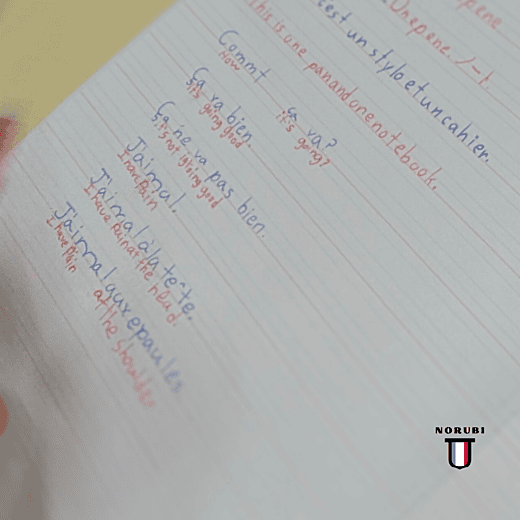 Une pene /-t.
c'est un stylo et un cahier.
This is one pan and one notebook.
Commt ça va?
How it's going?
Ça va bien.
it's going good
Ça ne va pas bien.
it's not going good
J'ai mal.
I have Pain
J'ai mal à la tête.
I have Pain at the head.
J'ai mal aux epaules
I have Pain at the shoulder
NORUBI